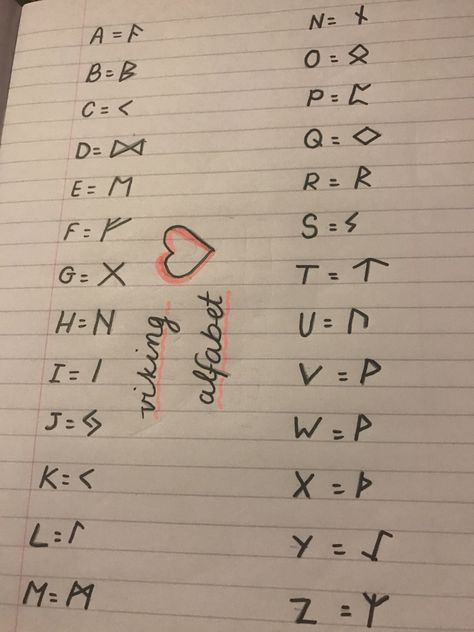 A = ᚨ
B = ᛒ
C = ᚲ
D = ᛞ
E = ᛖ
F = ᚠ
G = ᚷ
H = ᚺ
I = ᛁ
J = ᛃ
K = ᚲ
L = ᛚ
M = ᛗ
viking
alfabet
N = ᚾ
O = ᛟ
P = ᛈ
Q = ᛜ
R = ᚱ
S = ᛊ
T = ᛏ
U = ᚢ
V = ᚹ
W = ᚹ
X = ᚦ
Y = ᛇ
Z = ᛉ